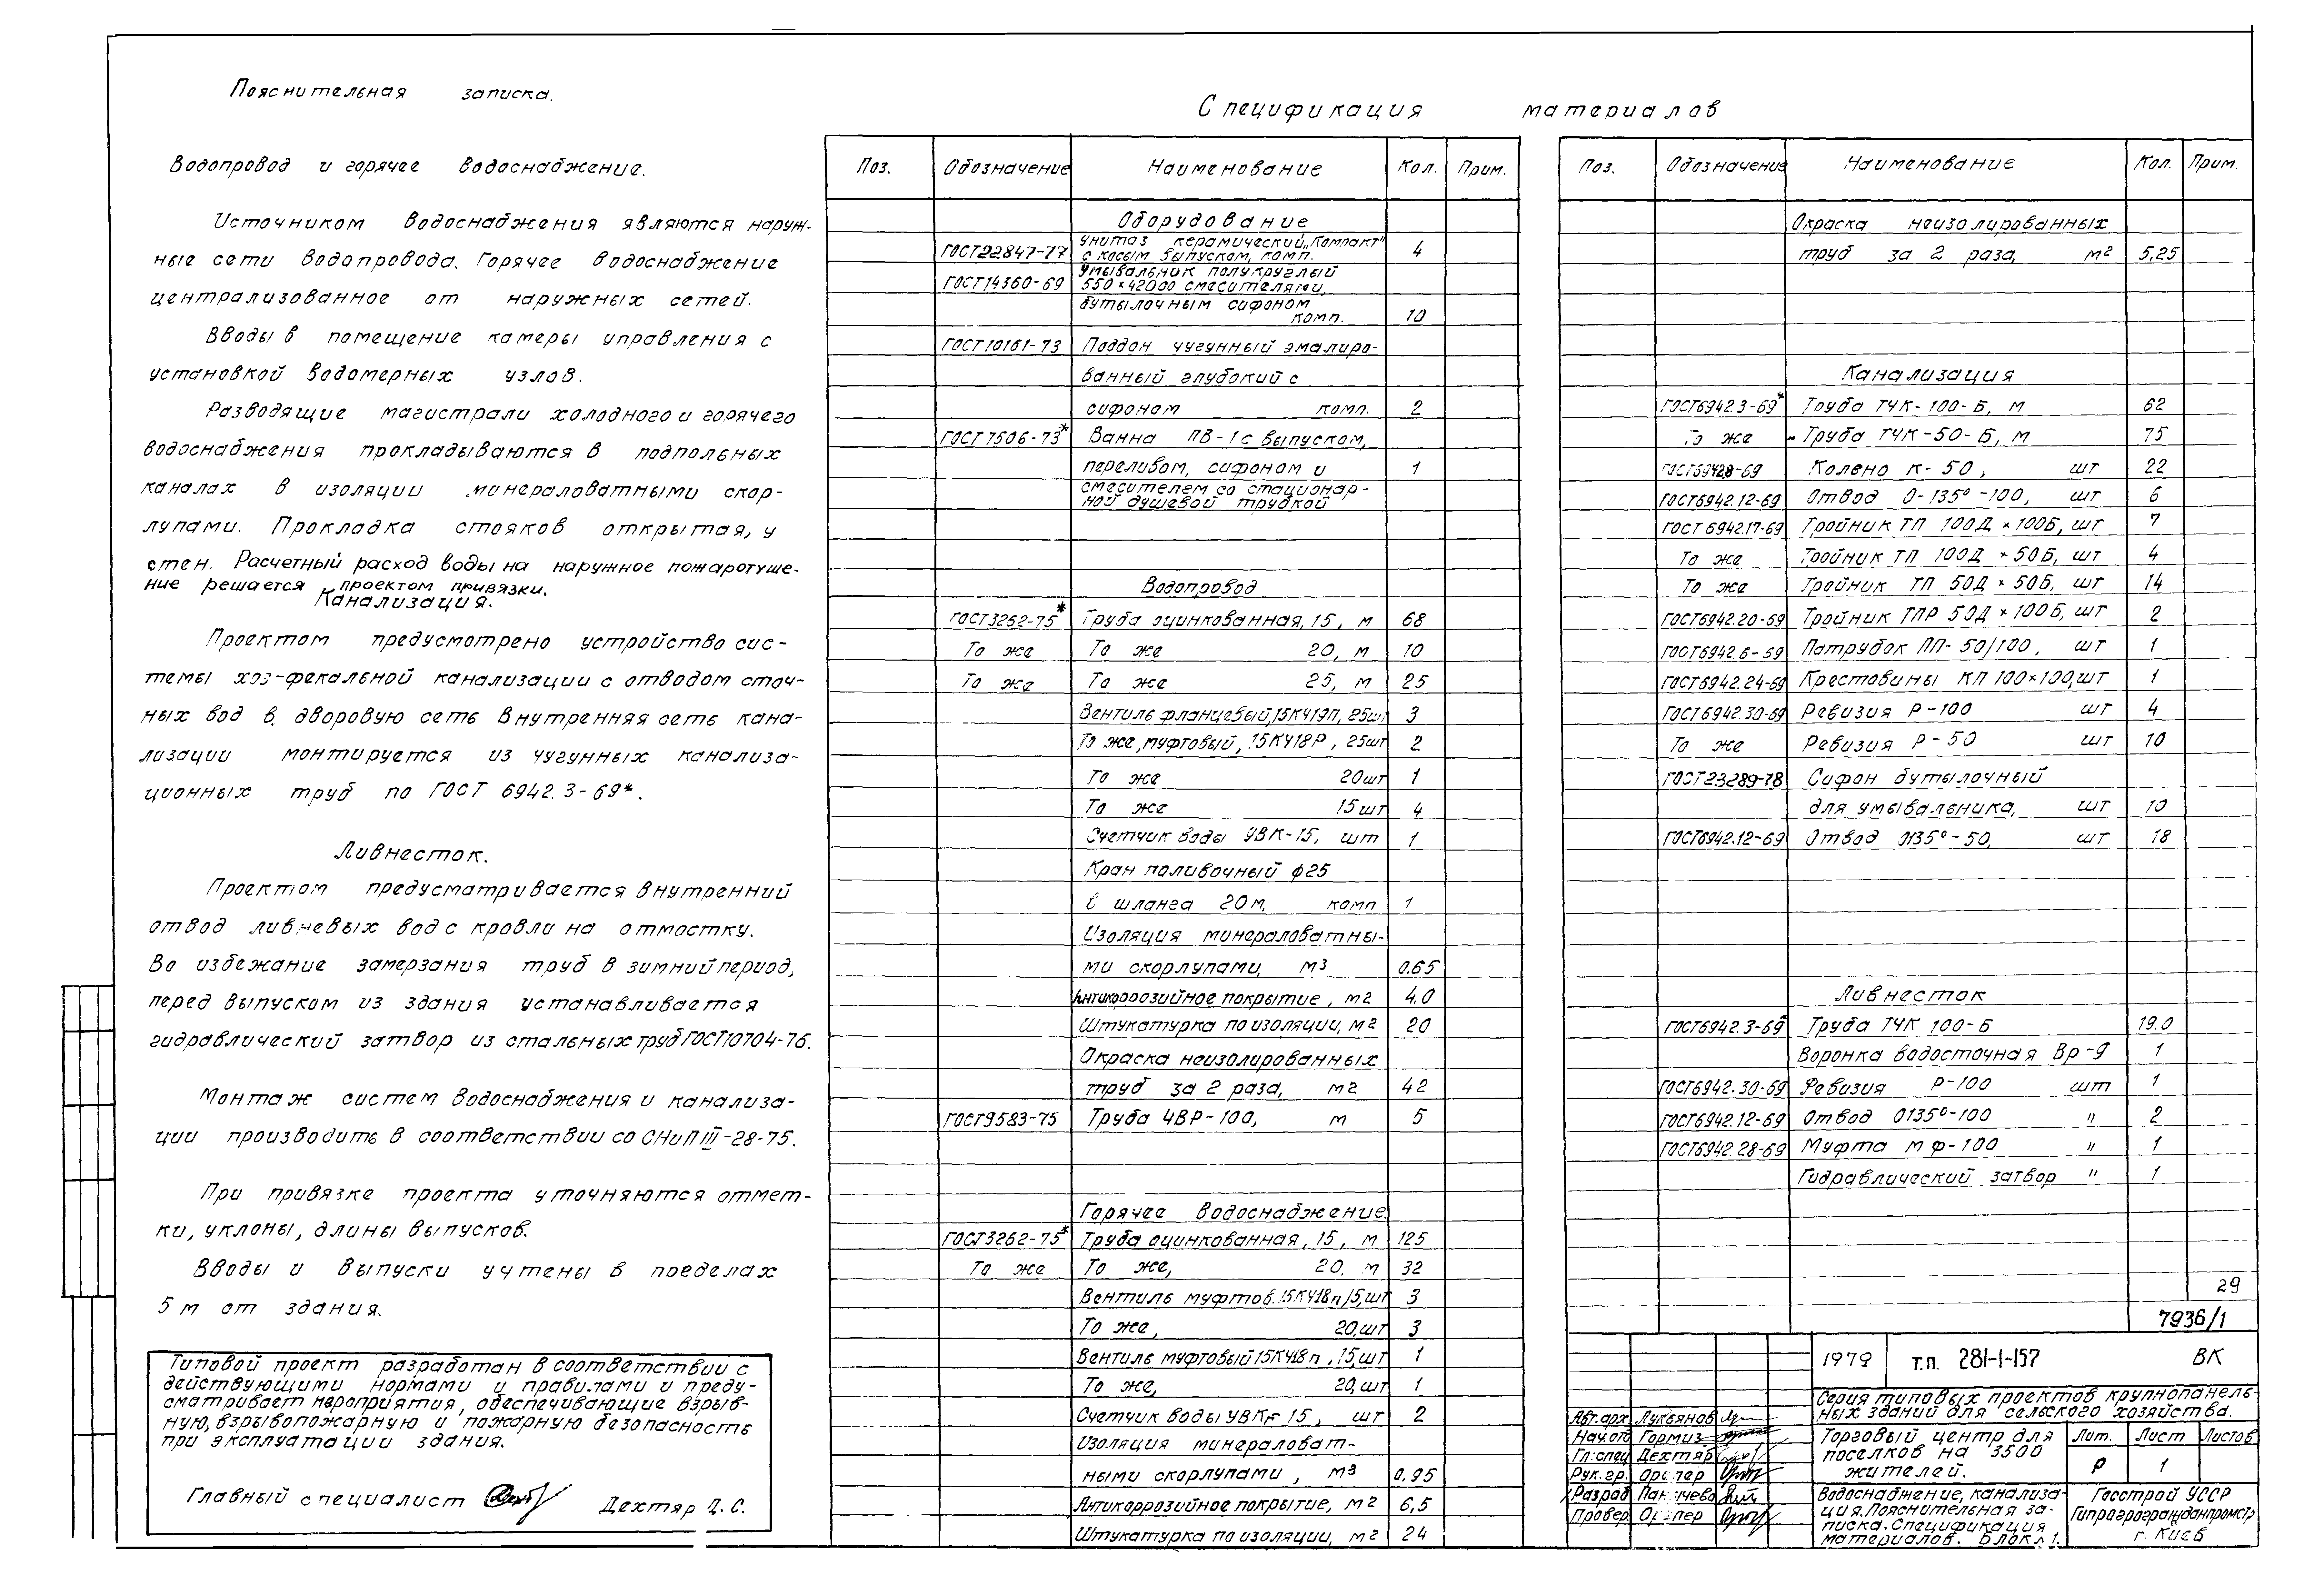 Пояснительная записка.
Водопровод и горячее водоснабжение.
Источником водоснабжения являются наруж-
ные сети водопровода. Горячее водоснабжение
централизованное от наружных сетей.
Вводы в помещение камеры управления с
установкой водомерных узлов.
Разводящие магистрали холодного и горячего
водоснабжения прокладываются в подпольных
каналах в изоляции минераловатными скор-
лупами. Прокладка стояков открытая, у
стен. Расчетный расход воды на наружное пожаротуше-
ние решается проектом привязки.
Канализация.
Проектом предусмотрено устройство сис-
темы хоз-фекальной канализации с отводом сточ-
ных вод в дворовую сеть Внутренняя сеть кана-
лизации монтируется из чугунных канализа-
ционных труб по ГОСТ 6942.3-69*.
Ливнесток.
Проектом предусматривается внутренний
отвод ливневых вод с кровли на отмостку.
Во избежание замерзания труб в зимний период,
перед выпуском из здания устанавливается
гидравлический затвор из стальных труб ГОСТ10704-76.
Монтаж систем водоснабжения и канализа-
ции производить в соответствии со СНиП III-28-75.
При привязке проекта уточняются отмет-
ки, уклоны, длины выпусков.
Вводы и выпуски учтены в пределах
5 м от здания.
Типовой проект разработан в соответствии с
действующими нормами и правилами и преду-
сматривает мероприятия, обеспечивающие взрыв-
ную, взрывопожарную и пожарную безопасность
при эксплуатации здания.
Главный специалист Дехтяр Ц.С.
Спецификация материалов
Поз. Обозначение Наименование Кол. Прим.
Оборудование
ГОСТ22847-77 унитаз керамический „Компакт"
с косым выпуском, комп. 4
ГОСТ14360-69 Умывальник полукруглый
550×420 со смесителями,
бутылочным сифоном
комп. 10
ГОСТ10161-73 Поддон чугунный эмалиро-
ванный глубокий с
сифоном комп. 2
ГОСТ 7506-73* Ванна ПВ-1 с выпуском,
переливом, сифоном и 1
смесителем со стационар-
ной душевой трубкой
Водопровод
ГОСТ3262-75* Труба оцинкованная, 15, м 68
То же То же 20, м 10
То же То же 25, м 25
Вентиль фланцевый, 15КЧ19П, 25шт 3
То же, муфтовый, 15КЧ18Р, 25шт 2
То же 20шт 1
То же 15шт 4
Счетчик воды УВК-15, шт 1
Кран поливочный ф25
и шланга 20м, комп 1
Изоляция минераловатны-
ми скорлупами, м3 0.65
Антикоррозийное покрытие, м2 4,0
Штукатурка по изоляции, м2 20
Окраска неизолированных
труб за 2 раза, м2 42
ГОСТ9583-75 Труба ЧВР-100, м 5
Горячее водоснабжение.
ГОСТ3262-75* Труба оцинкованная, 15, м 125
То же То же, 20, м 32
Вентиль муфтов. 15КЧ18п 15, шт 3
То же, 20, шт 3
Вентиль муфтовый 15КЧ18п, 15, шт 1
То же, 20, шт 1
Счетчик воды УВКГ 15, шт 2
Изоляция минераловат-
ными скорлупами, м3 0,95
Антикоррозийное покрытие, м2 6,5
Штукатурка по изоляции, м2 24
Поз. Обозначение Наименование Кол. Прим.
Окраска неизолированных
труб за 2 раза, м2 5,25
Канализация
ГОСТ6942.3-69* Труба ТЧК-100-Б, м 62
То же Труба ТЧК-50-Б, м 75
ГОСТ6942.8-69 Колено К-50, шт 22
ГОСТ6942.12-69 Отвод О-135°-100, шт 6
ГОСТ6942.17-69 Тройник ТП 100Д×100Б, шт 7
То же Тройник ТП 100Д×50Б, шт 4
То же Тройник ТП 50Д×50Б, шт 14
ГОСТ6942.20-69 Тройник ТПР 50Д×100Б, шт 2
ГОСТ6942.6-69 Патрубок ПП-50/100, шт 1
ГОСТ6942.24-69 Крестовины КП 100×100, шт 1
ГОСТ6942.30-69 Ревизия Р-100 шт 4
То же Ревизия Р-50 шт 10
ГОСТ23289-78 Сифон бутылочный
для умывальника, шт 10
ГОСТ6942.12-69 Отвод О135°-50, шт 18
Ливнесток
ГОСТ6942.3-69* Труба ТЧК 100-Б 19.0
Воронка водосточная Вр-9 1
ГОСТ6942.30-69 Ревизия Р-100 шт 1
ГОСТ6942.12-69 Отвод О135°-100 " 2
ГОСТ6942.28-69 Муфта МФ-100 " 1
Гидравлический затвор " 1
29
7936/1
1979 т.п. 281-1-157 ВК
Серия типовых проектов крупнопанель-
ных зданий для сельского хозяйства.
Авт.арх. Лукьянов
Нач.отд Гормиз
Гл.спец Дехтяр
Рук.гр. Орлер
Разраб
Провер Орлер
Торговый центр для
поселков на 3500
жителей.
Лит. Лист Листов
Р 1
Водоснабжение, канализа-
ция. Пояснительная за-
писка. Спецификация
материалов. Блок 1.
Госстрой УССР
Гипрограждапромстр
г. Киев